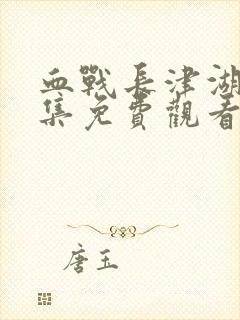 血戰長津湖
集免費觀看
唐玉